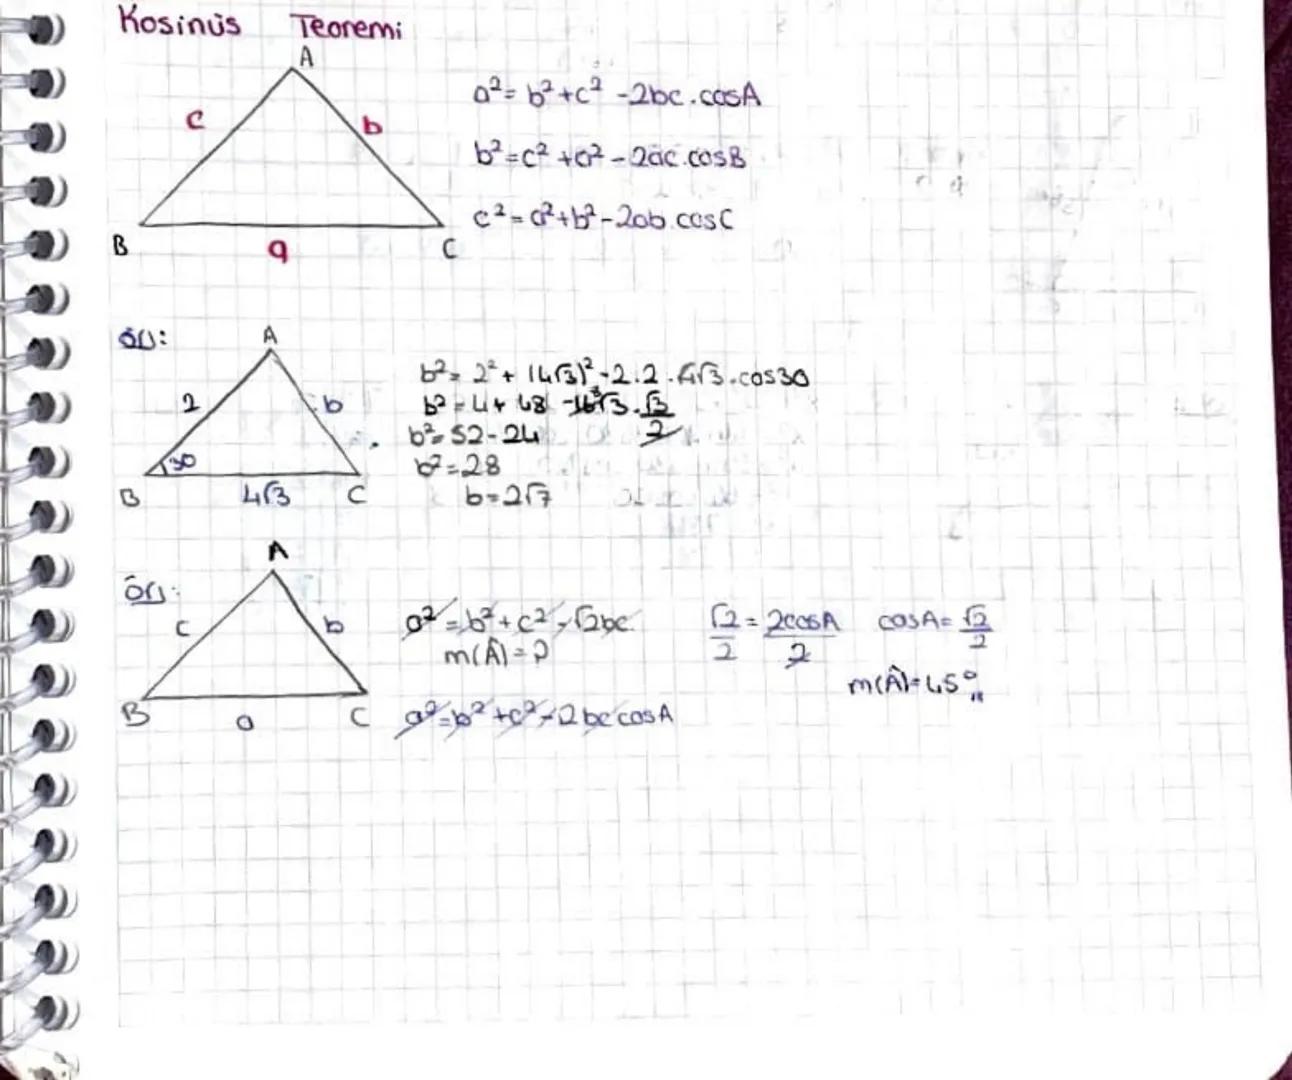 Kosinüs Teoremi
A
c b
B a C
a² = b² + c² - 2bc.cosA
b² = c² + a² - 2ac.cosB
c² = a² + b² - 2ab.cosC
ÖrJ:
A
2 b
30
B 4√3 C
b² = 2² + (4√3)² - 2.2.4√3.cos30
b² = 4 + 48 - 16√3.√3/2
b² = 52 - 24
b² = 28
b = 2√7
Örj:
A
c b
B a C
a² = b² + c² - √2bc
m(Â) = ?
a² = b² + c² - 2bc cosA
√2/2 = 2cosA/2 cosA = √2/2
m(Â) = 45°